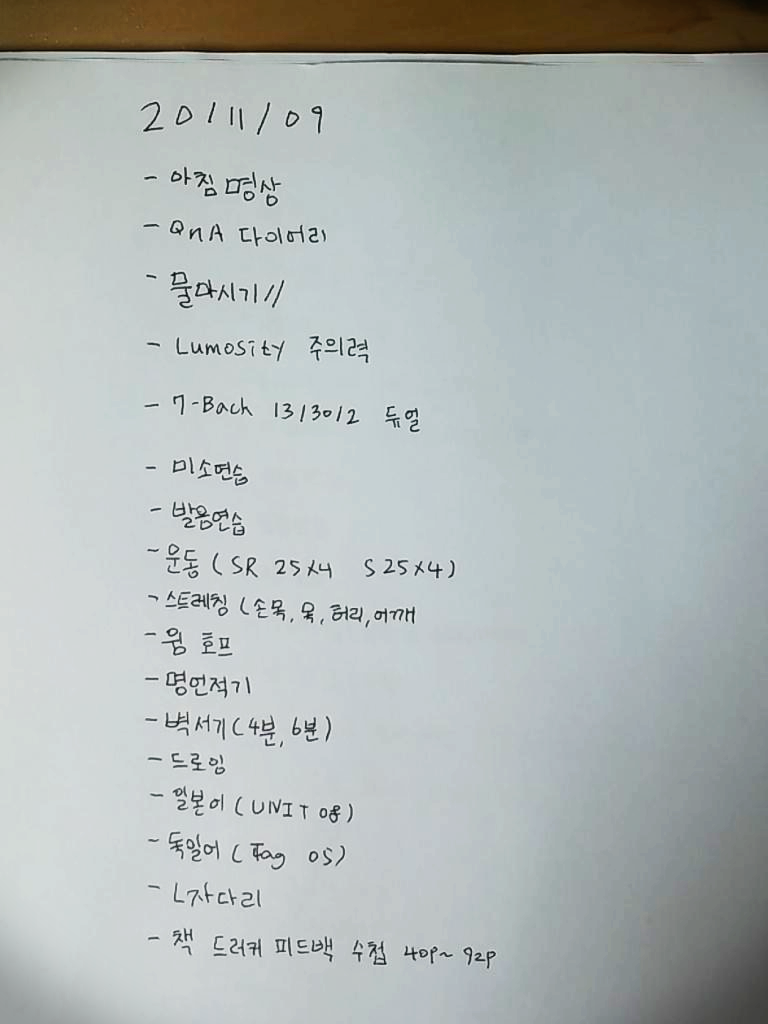 20/11/09
- 아침 명상
- QnA 다이어리
- 물마시기//
- Lumosity 주의력
- 7-Back 13/30/2 듀얼
- 미소연습
- 발음연습
- 운동 (SR 25x4 S 25x4)
- 스트레칭 (손목, 목, 허리, 어깨
- 윔 호프
- 명언적기
- 벽서기 (4분, 6분)
- 드로잉
- 일본어 (UNIT 08)
- 독일어 (Tag 05)
- L자다리
- 책 드러커 피드백 수첩 40p~ 92p